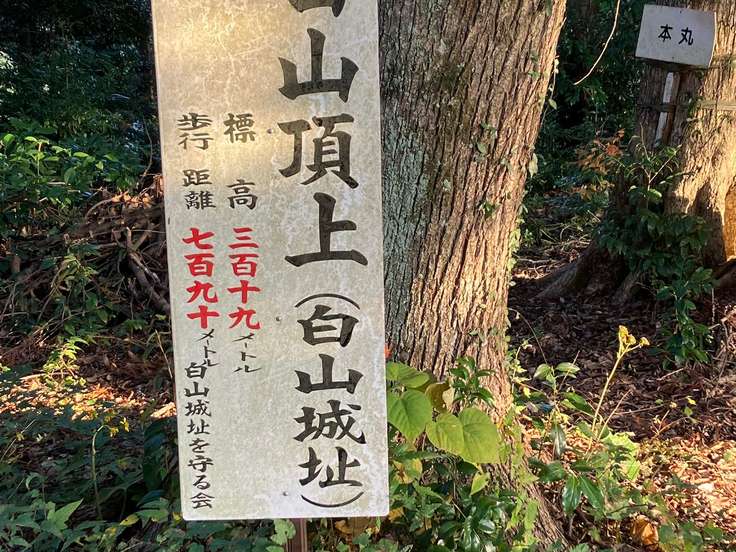 山頂上（白山城址）
標高 三百十九メートル
歩行距離 七百九十メートル 白山城址を守る会
本丸